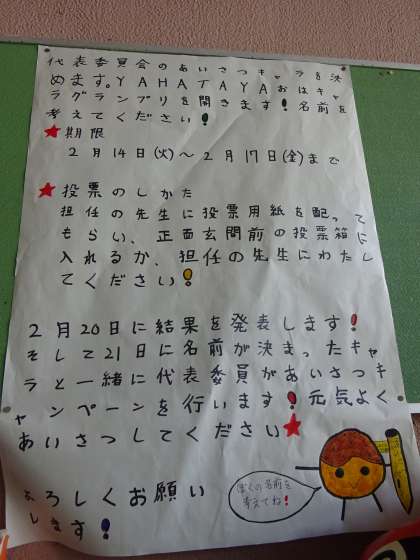 代表委員会のあいさつキャラを決
めます。YAHATAYAおはキャ
ラグランプリを開きます！名前を
考えてください！
★期限
2月14日(火)～2月17日(金)まで
★投票のしかた
担任の先生に投票用紙を配って
もらい、正面玄関前の投票箱に
入れるか、担任の先生にわたし
てください！
2月20日に結果を発表します！
そして21日に名前が決まったキャ
ラと一緒に代表委員があいさつキ
ャンペーンを行います！元気よく
あいさつしてください★
よろしくお願い
します！
ぼくの名前を
考えてね！